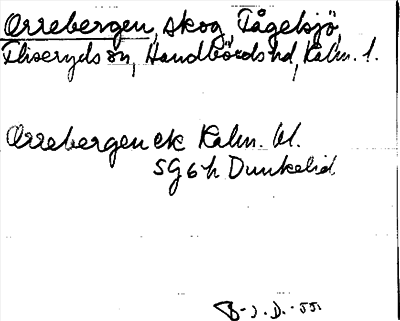 Orrebergen, skog, Tågelsjö,
Fliseryds sn, Handbörds hd, Kalm. l.
Orrebergen ek Kalm. bl.
5G6h Dunkelid
B-J.D.-55.